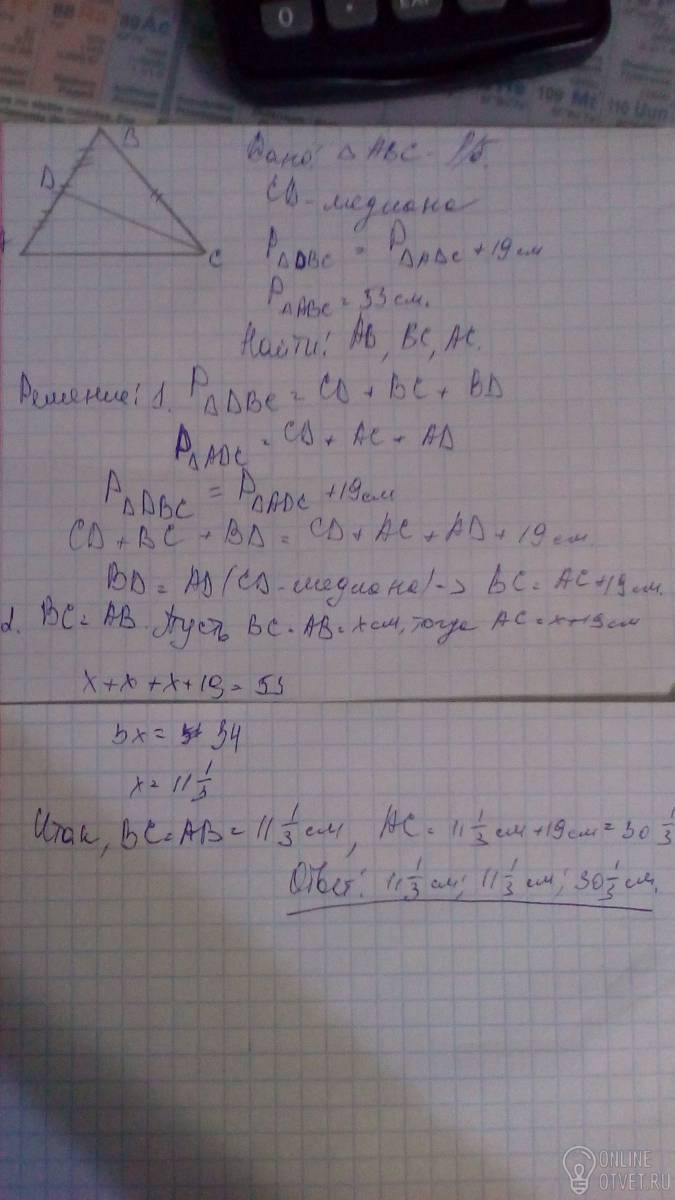 0
109 Mt 110 Uun
B
D
C
Дано: △ABC - р/б.
CD - медиана
P△DBC = P△ADC + 19 см
P△ABC = 53 см.
Найти: AB, BC, AC.
Решение: 1. P△DBC = CD + BC + BD
P△ADC = CD + AC + AD
P△DBC = P△ADC + 19 см
CD + BC + BD = CD + AC + AD + 19 см.
BD = AD (CD - медиана) -> BC = AC + 19 см.
2. BC = AB. Пусть BC = AB = x см, тогда AC = x + 19 см
x + x + x + 19 = 53
3x = 34
x = 11 1/3
Итак, BC = AB = 11 1/3 см, AC = 11 1/3 см + 19 см = 30 1/3
Ответ: 11 1/3 см; 11 1/3 см; 30 1/3 см.
ONLINE
OTVET.RU